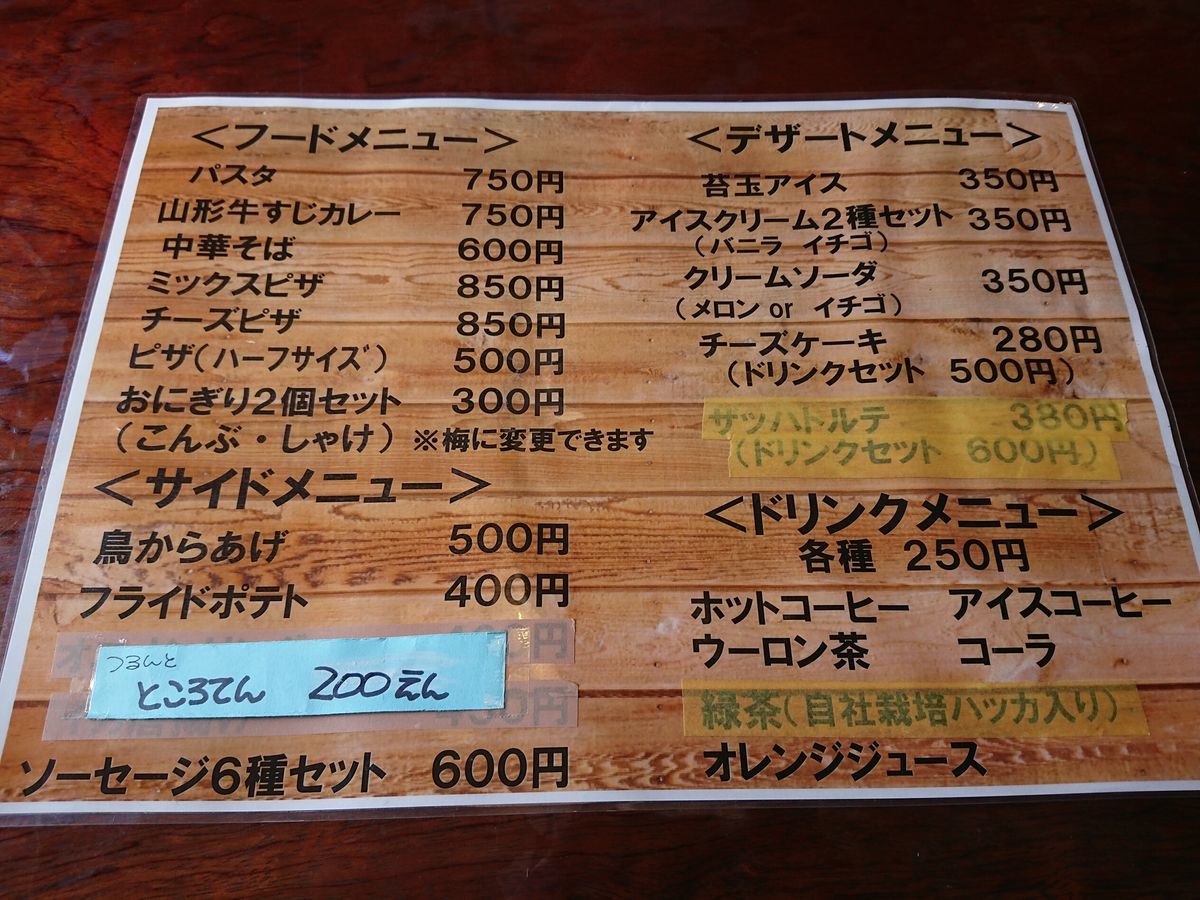 ＜フードメニュー＞
パスタ 750円
山形牛すじカレー 750円
中華そば 600円
ミックスピザ 850円
チーズピザ 850円
ピザ（ハーフサイズ） 500円
おにぎり2個セット 300円
（こんぶ・しゃけ）※梅に変更できます
＜サイドメニュー＞
鳥からあげ 500円
フライドポテト 400円
つるんと
ところてん 200えん
ソーセージ6種セット 600円
＜デザートメニュー＞
苔玉アイス 350円
アイスクリーム2種セット 350円
（バニラ イチゴ）
クリームソーダ 350円
（メロン or イチゴ）
チーズケーキ 280円
（ドリンクセット 500円）
サッハトルテ 380円
（ドリンクセット 600円）
＜ドリンクメニュー＞
各種 250円
ホットコーヒー アイスコーヒー
ウーロン茶 コーラ
緑茶（自社栽培ハッカ入り）
オレンジジュース